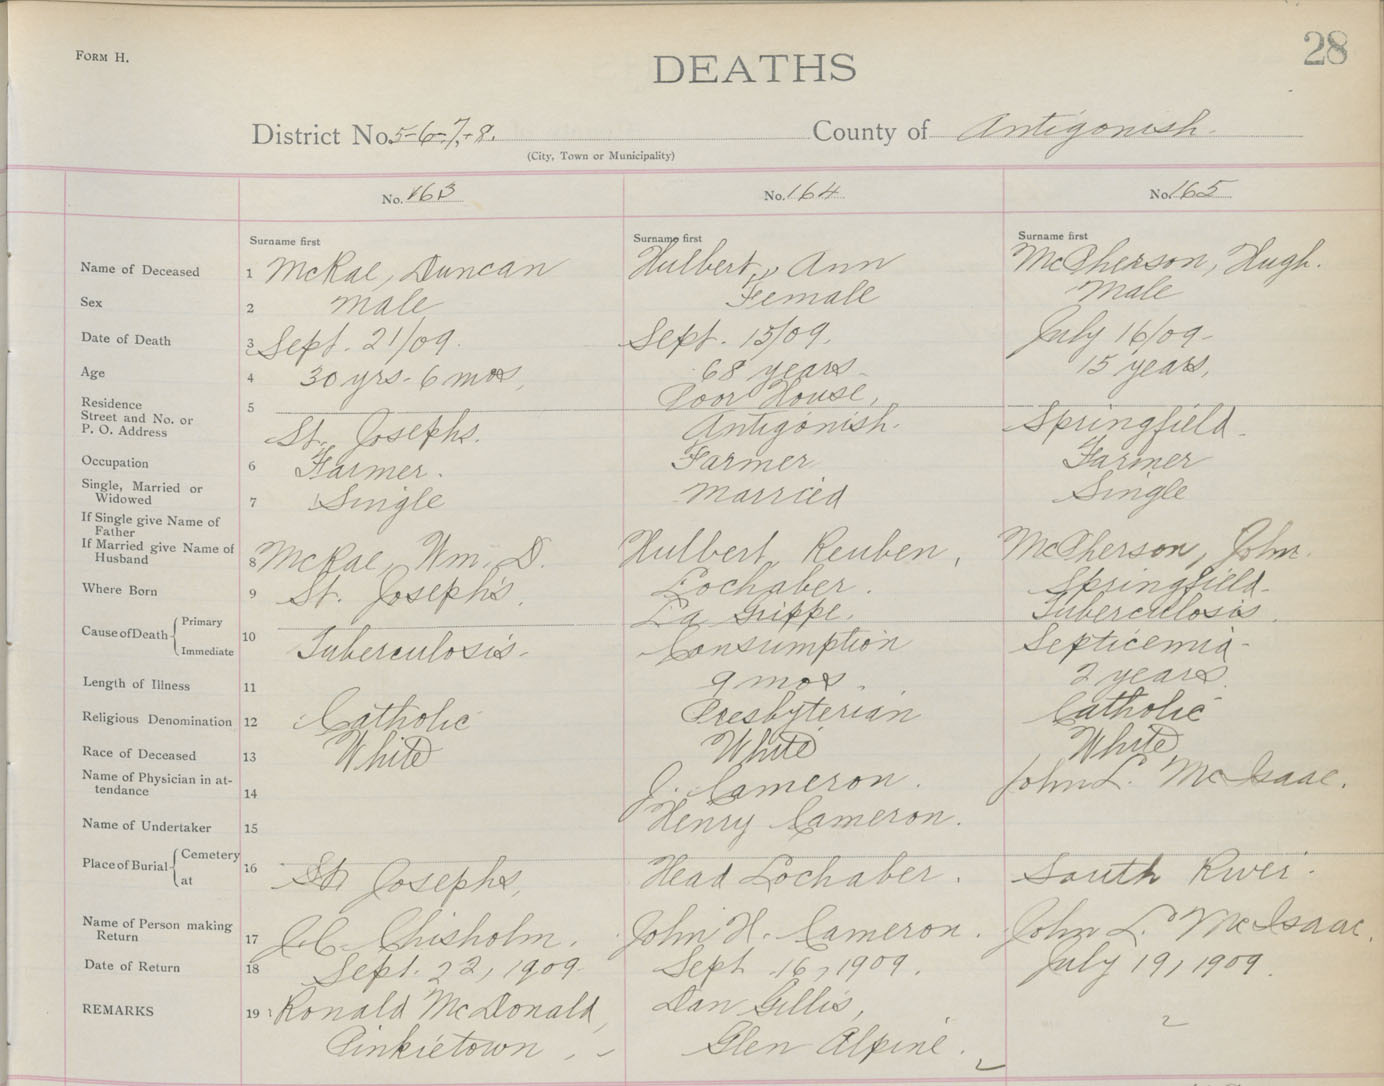 FORM H.
DEATHS
28
District No. 5-6-7-8. County of Antigonish.
(City, Town or Municipality)
No. 163 No. 164 No. 165
Surname first Surname first Surname first
Name of Deceased 1 McRae, Duncan Hulbert, Ann McPherson, Hugh.
Sex 2 Male Female Male
Date of Death 3 Sept. 21/09. Sept. 15/09. July 16/09.
Age 4 30 yrs. 6 mos, 68 years. 15 years,
Residence Street and No. or P. O. Address 5 St. Josephs. Poor House, Antigonish. Springfield.
Occupation 6 Farmer. Farmer Farmer
Single, Married or Widowed 7 Single Married Single
If Single give Name of Father
If Married give Name of Husband 8 McRae, Wm. D. Hulbert, Reuben, McPherson, John.
Where Born 9 St. Joseph's. Lochaber. Springfield.
Cause of Death { Primary La Grippe. Tuberculosis.
Immediate 10 Tuberculosis. Consumption Septicemia.
Length of Illness 11 9 mos. 2 years
Religious Denomination 12 Catholic Presbyterian Catholic
Race of Deceased 13 White White White
Name of Physician in attendance 14 J. Cameron. John L. McIsaac.
Name of Undertaker 15 Henry Cameron.
Place of Burial { Cemetery at 16 St. Josephs, Head Lochaber. South River.
Name of Person making Return 17 J. C. Chisholm. John H. Cameron. John L. McIsaac.
Date of Return 18 Sept. 22, 1909. Sept. 16, 1909. July 19, 1909.
REMARKS 19 Ronald McDonald, Dan Gillis,
Pinkietown. Glen Alpine.